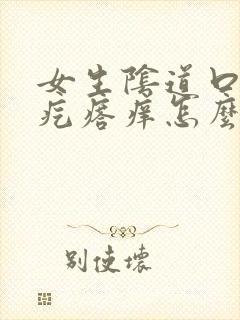 女生陰道口
疙瘩痒怎麼
別使壞